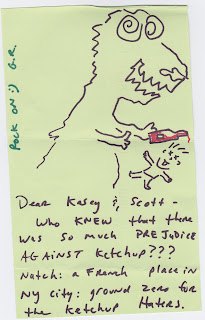 ROCK ON :) G.R.
Dear Kasey &, Scott -
Who KNEW that there
was so much PREJUDICE
AGAINST Ketchup???
Natch: a French place in
NY City: ground zero for
the Ketchup Haters.